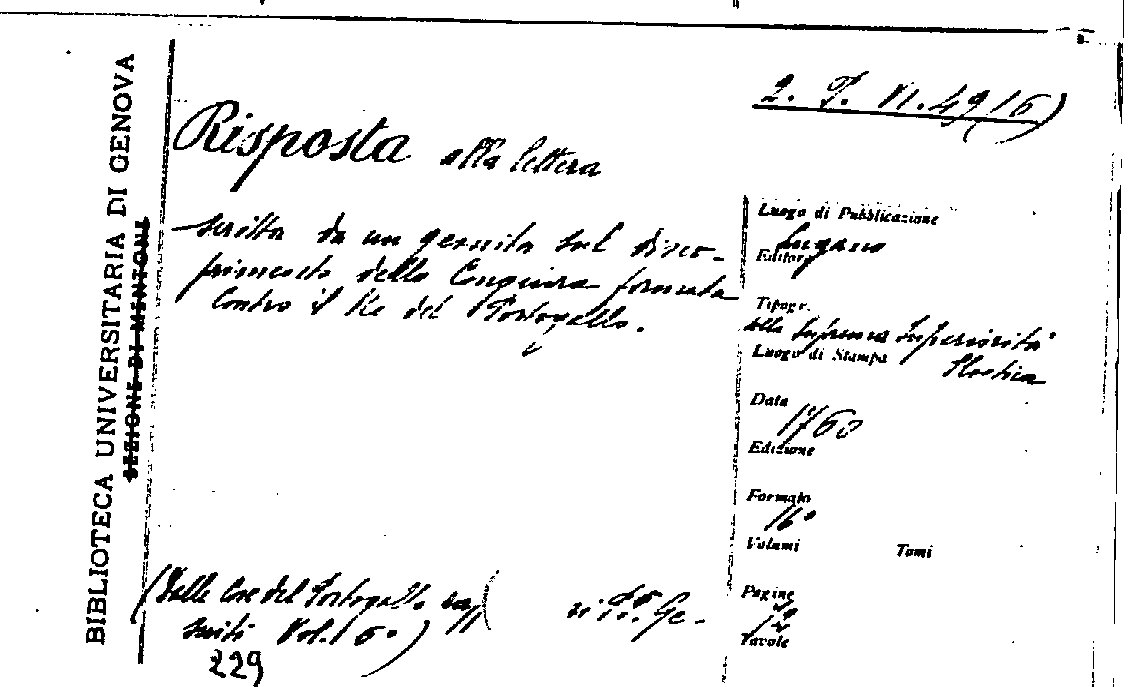 BIBLIOTECA UNIVERSITARIA DI GENOVA
SEZIONE DI MENTONE
2. T. N. 49 (6)
Risposta alla lettera
scritta da un gesuita sul disco-
primento della Congiura formata
contro il Re del Portogallo.
Luogo di Pubblicazione
Lugano
Editore
Tipogr.
alla Suprema Superiorità
Elvetica
Luogo di Stampa
Data
1760
Edizione
Formato
16°
Volumi Tomi
Pagine
Tavole
(Dalle Cose del Portogallo
Vol. 6°)
229